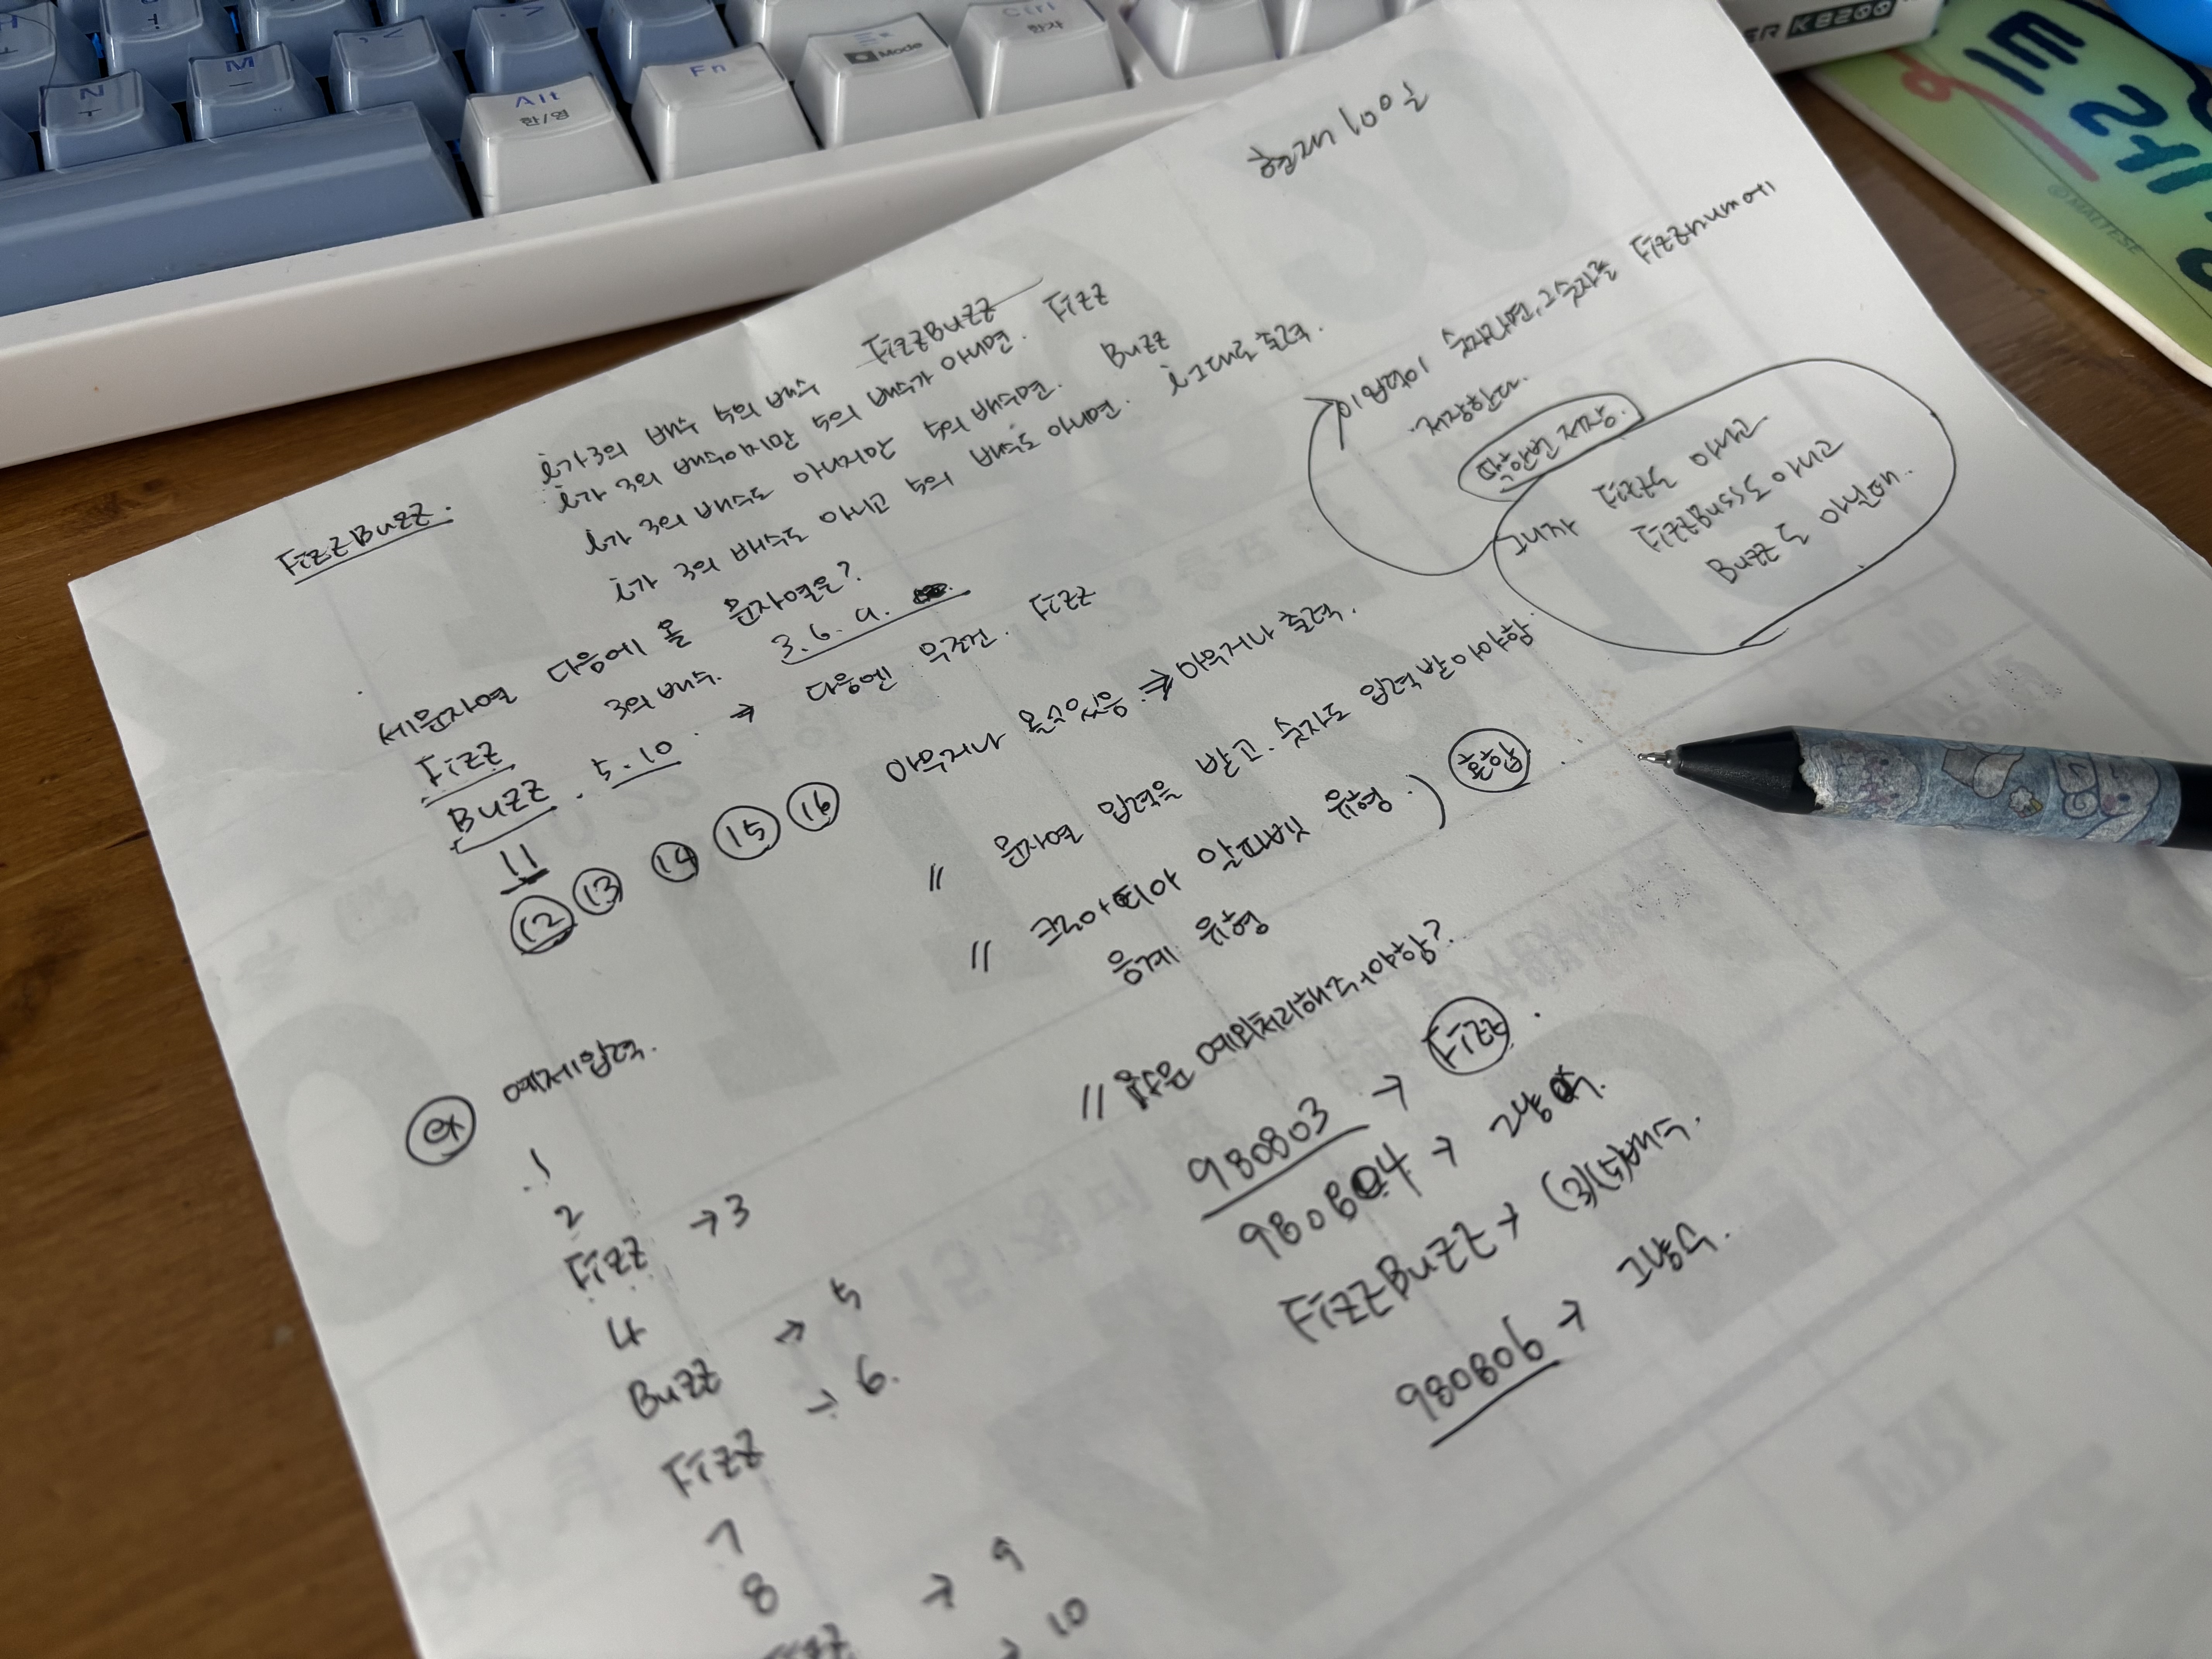 N
M
Alt
한/영
Fn
Mode
Ctrl
한자
ER K8200
티끄
©MALTESE
현재 100일
FizzBuzz.
i가 3의 배수 5의 배수 FizzBuzz
i가 3의 배수이지만 5의 배수가 아니면. Fizz
i가 3의 배수도 아니지만 5의 배수면. Buzz
i가 3의 배수도 아니고 5의 배수도 아니면. i그대로 출력.
이 입력이 숫자라면, 그 숫자를 Fizznum에
저장한다.
딱 한번 저장.
그니까 Fizz도 아니고
FizzBuss도 아니고
Buzz도 아닐때.
세문자열 다음에 올 문자열은?
Fizz 3의 배수. 3. 6. 9.
Buzz. 5. 10. → 다음엔 무조건. Fizz
11
12 13 14 15 16 아무거나 올 수 있음. → 아무거나 출력.
// 문자열 입력을 받고. 숫자도 입력 받아야함
// 유형.) 혼합
응계 유형
ex 예제입력.
// 값은 예외처리해주어야함?
1
2
Fizz → 3
4
Buzz → 5
Fizz → 6.
7
8
Fizz → 9
→ 10
980803 → Fizz.
980804 → 그냥 수.
FizzBuzz → (3)(5)배수.
980806 → 그냥수.